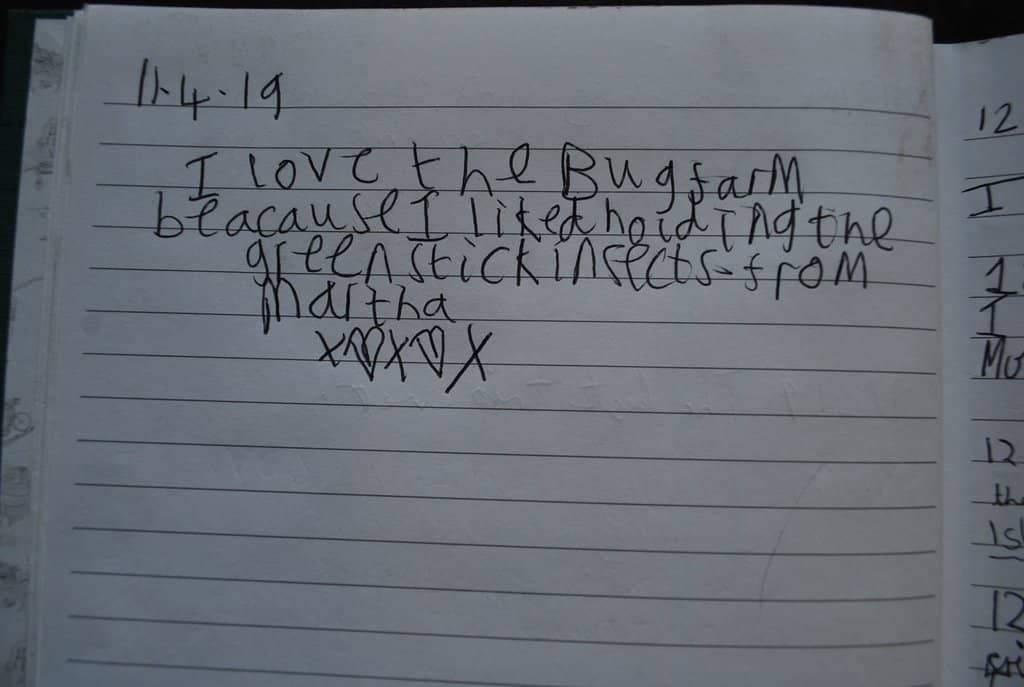 11.4.19
I love the Bugfarm
beacause I liked holding the
green stick insects-from
Martha
x♡x♡x
12
I
1.
I
Mu
12
the
Isl
12